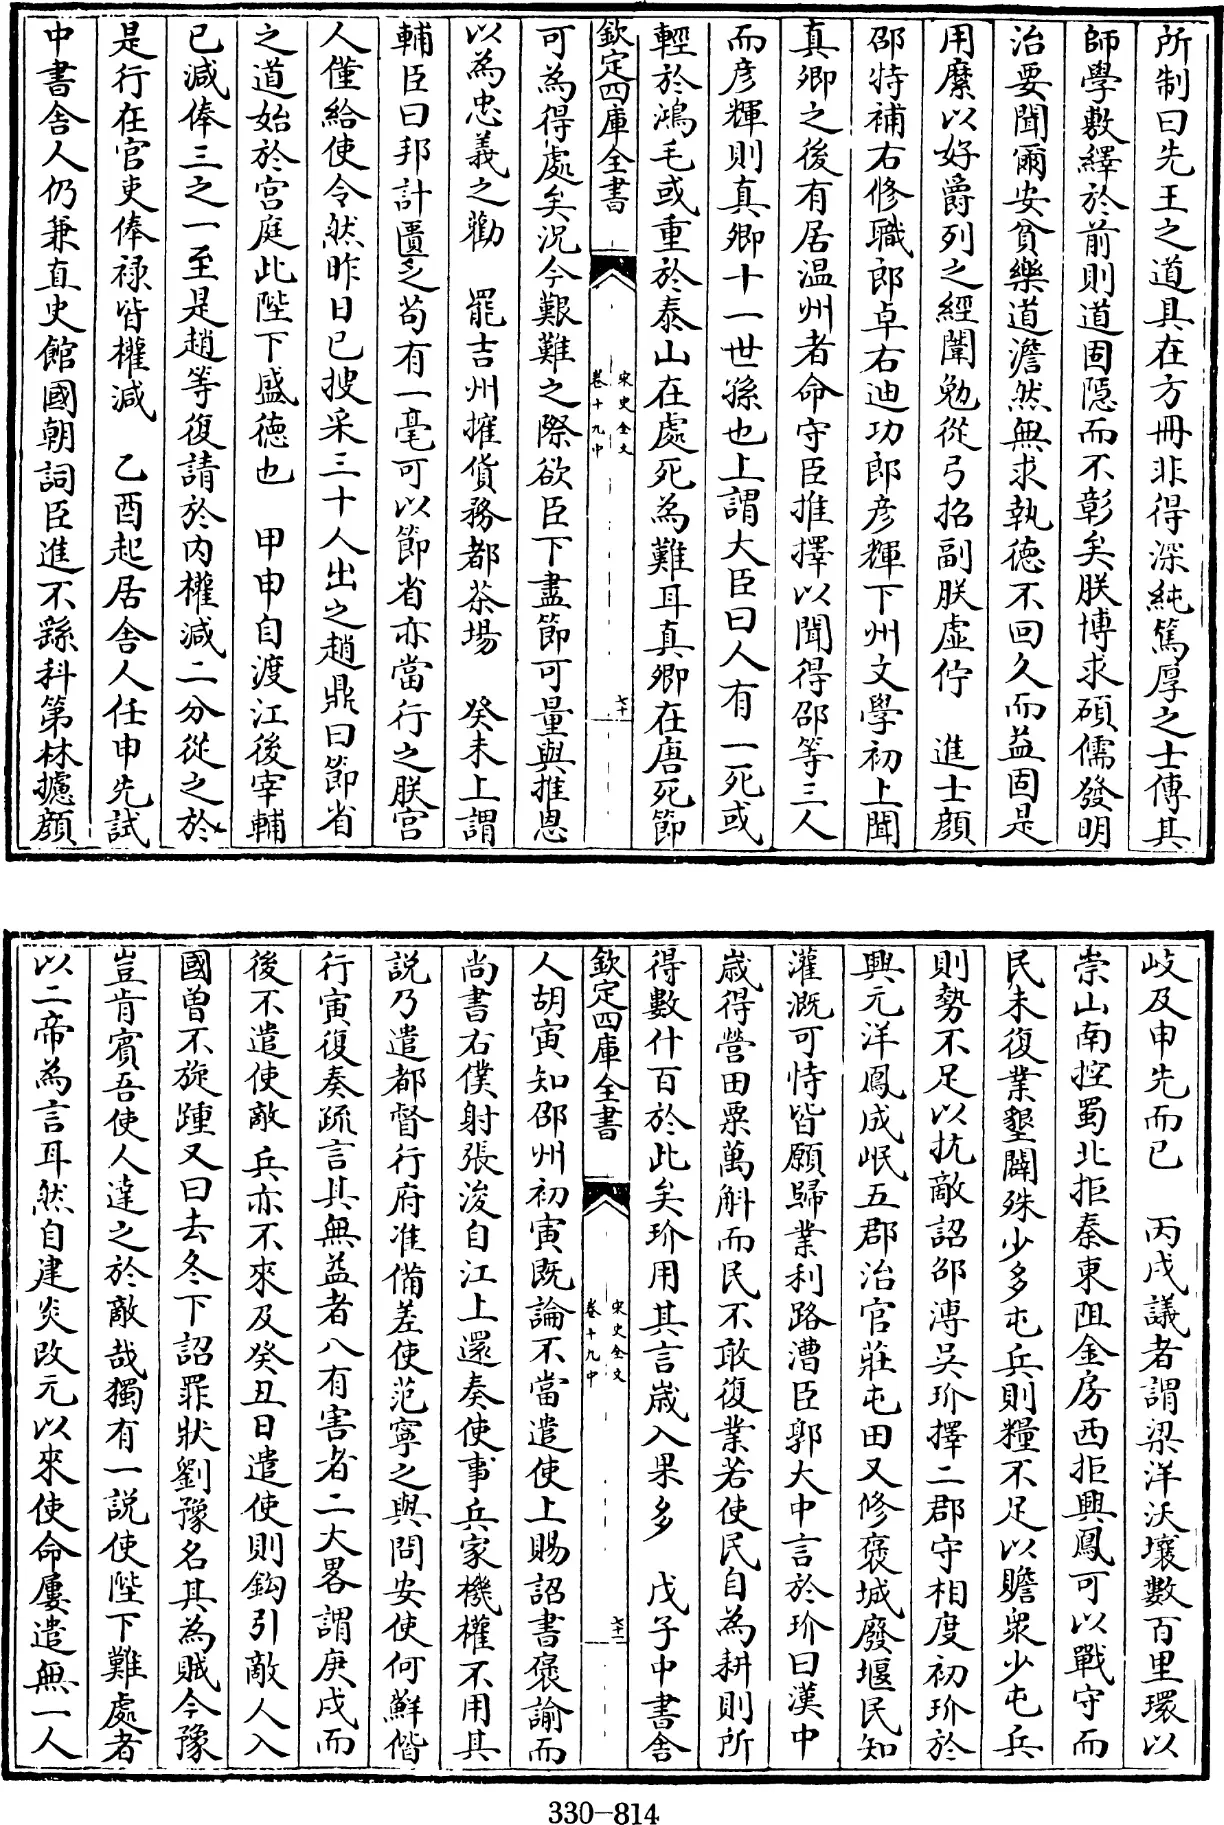 所制曰先王之道具在方冊非得深純篤厚之士傳其
師學敷繹於前則道固隱而不彰矣朕博求碩儒發明
治要聞爾安貧樂道澹然無求執德不回久而益固是
用縻以好爵列之經闈勉從弓招副朕虛佇　進士顔
邵特補右修職郎卓右迪功郎彦輝下州文學初上聞
真卿之後有居温州者命守臣推擇以聞得邵等三人
而彦輝則真卿十一世孫也上謂大臣曰人有一死或
輕於鴻毛或重於泰山在處死為難耳真卿在唐死節
欽定四庫全書　宋史全文　卷十九中　七十
可為得處矣況今艱難之際欲臣下盡節可量與推恩
以為忠義之勸　罷吉州㩁貨務都茶場　癸未上謂
輔臣曰邦計匱乏苟有一毫可以節省亦當行之朕宫
人僅給使令然昨日已搜采三十人出之趙鼎曰節省
之道始於宫庭此陛下盛德也　甲申自渡江後宰輔
已減俸三之一至是趙等復請於内權減二分從之於
是行在官吏俸禄皆權減　乙酉起居舍人任申先試
中書舍人仍兼直史館國朝詞臣進不繇科第林攄顔
岐及申先而已　丙戌議者謂梁洋沃壤數百里環以
崇山南控蜀北拒秦東阻金房西拒興鳳可以戰守而
民未復業墾闢殊少多屯兵則糧不足以贍衆少屯兵
則勢不足以抗敵詔邵溥吳玠擇二郡守相度初玠於
興元洋鳳成岷五郡治官莊屯田又修褒城廢堰民知
灌溉可恃皆願歸業利路漕臣郭大中言於玠曰漢中
嵗得營田粟萬斛而民不敢復業若使民自為耕則所
得數什百於此矣玠用其言嵗入果多　戊子中書舍
欽定四庫全書　宋史全文　卷十九中　七十一
人胡寅知邵州初寅既論不當遣使上賜詔書褒諭而
尚書右僕射張浚自江上還奏使事兵家機權不用其
説乃遣都督行府准備差使范寧之與問安使何蘚偕
行寅復奏疏言其無益者八有害者二大畧謂庚戌而
後不遣使敵兵亦不來及癸丑日遣使則鈎引敵人入
國曾不旋踵又曰去冬下詔罪狀劉豫名其為賊今豫
豈肯賓吾使人達之於敵哉獨有一説使陛下難處者
以二帝為言耳然自建炎改元以來使命屢遣無一人
330-814